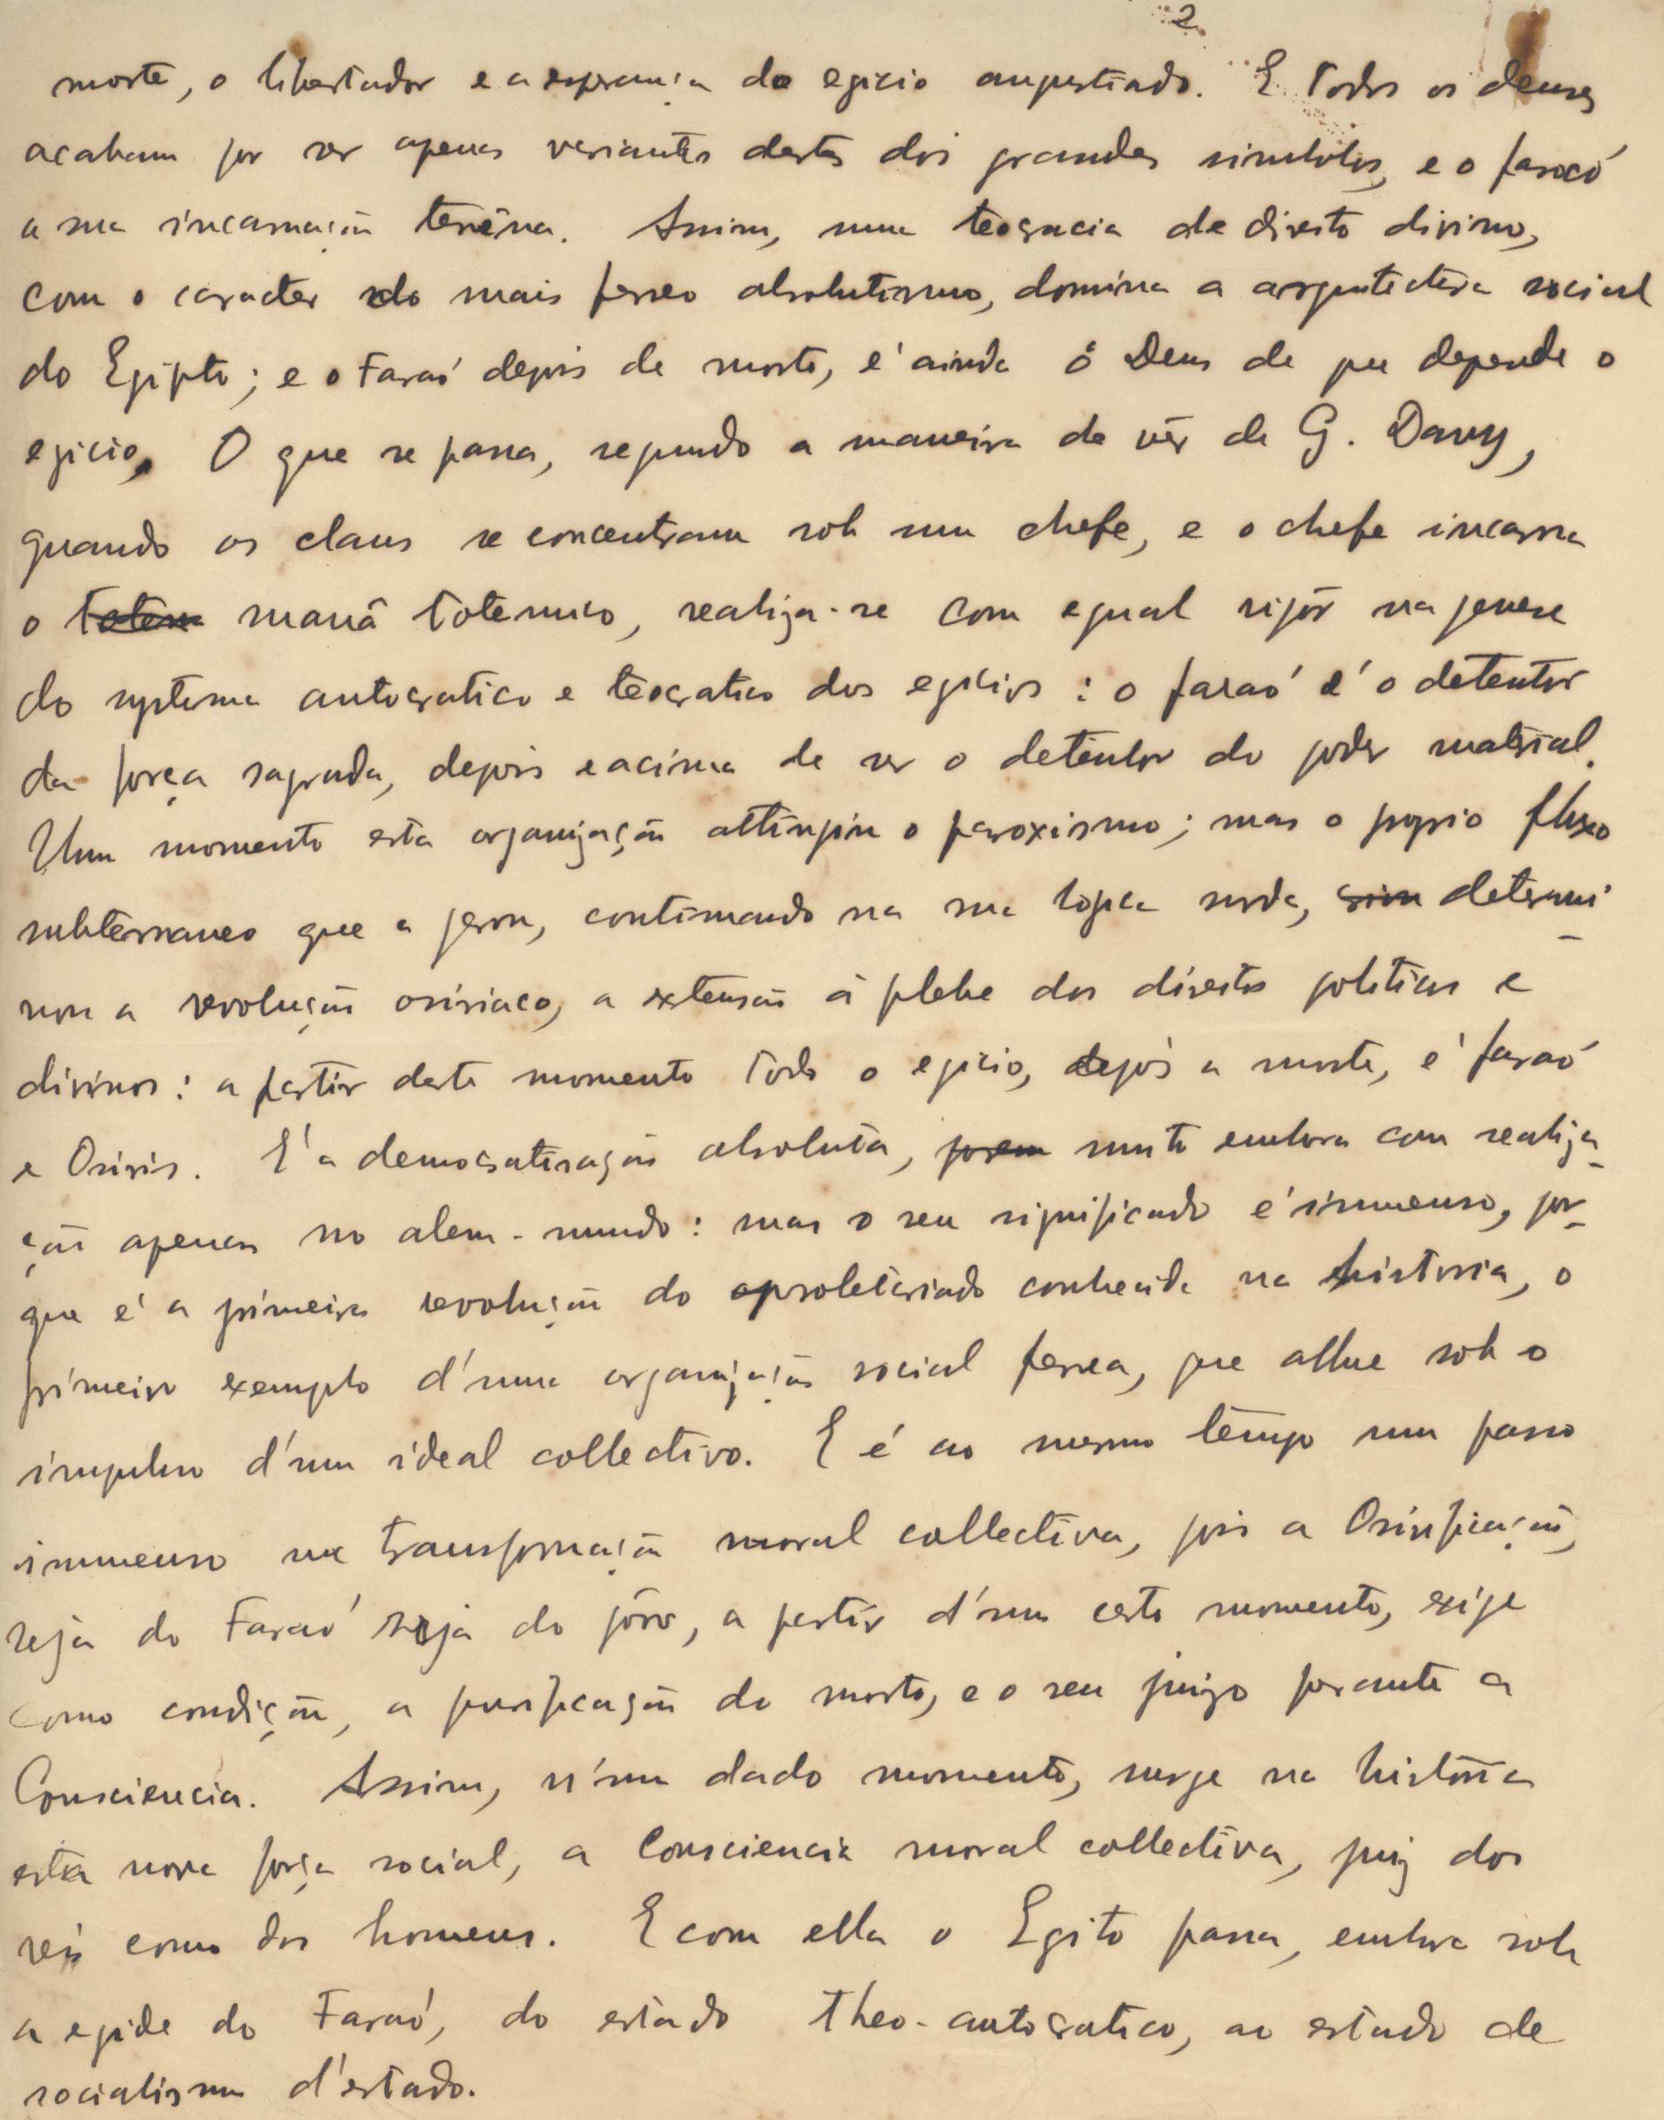 2
morte, o libertador e a esperança do egicio angustiado. E todos os deuses
acabam por ser apenas variantes destes dois grandes simbolos, e o faraó
a sua incarnação terrêna. Assim, uma teocracia de direito divino,
com o caracter do mais ferreo absolutismo, domina a arquitectura social
do Egipto; e o Faraó depois de morto, é ainda o Deus de que depende o
egicio. O que se passa, segundo a maneira de vêr de G. Davy,
quando os clans se concentram sob um chefe, e o chefe incarna
o totem maná totemico, realiza-se com egual rigôr na genese
do systema autocratico e teocratico dos egicios: o faraó é o detentor
da força sagrada, depois e acima de ser o detentor do poder material.
Um momento esta organização attingiu o paroxismo; mas o proprio fluxo
subterraneo que a gerou, continuando na sua logica surda, determi-
nou a revolução osiriaca, a extensão á plebe dos direitos politicos e
divinos: a partir deste momento todo o egicio, depois a morte, é faraó
e Osiris. E' a democratisação absoluta, porem muito embora com realiza-
ção apenas no alem-mundo: mas o seu significado é immenso, por-
que é a primeira revolução do proletariado conhecida na historia, o
primeiro exemplo d'uma organização social ferrea, que allue sob o
impulso d'um ideal collectivo. E é ao mesmo tempo um passo
immenso na transformação moral collectiva, pois a Osirificação,
seja do Faraó seja do pôvo, a partir d'um certo momento, exige
como condição, a purificação do morto, e o seu juizo perante a
Consciencia. Assim, n'um dado momento, surge na história
esta nova força social, a Consciencia moral collectiva, juiz dos
reis como dos homens. E com ella o Egito passa, embora sob
a egide do Faraó, do estado theo-autocratico, ao estado de
socialismo d'estado.